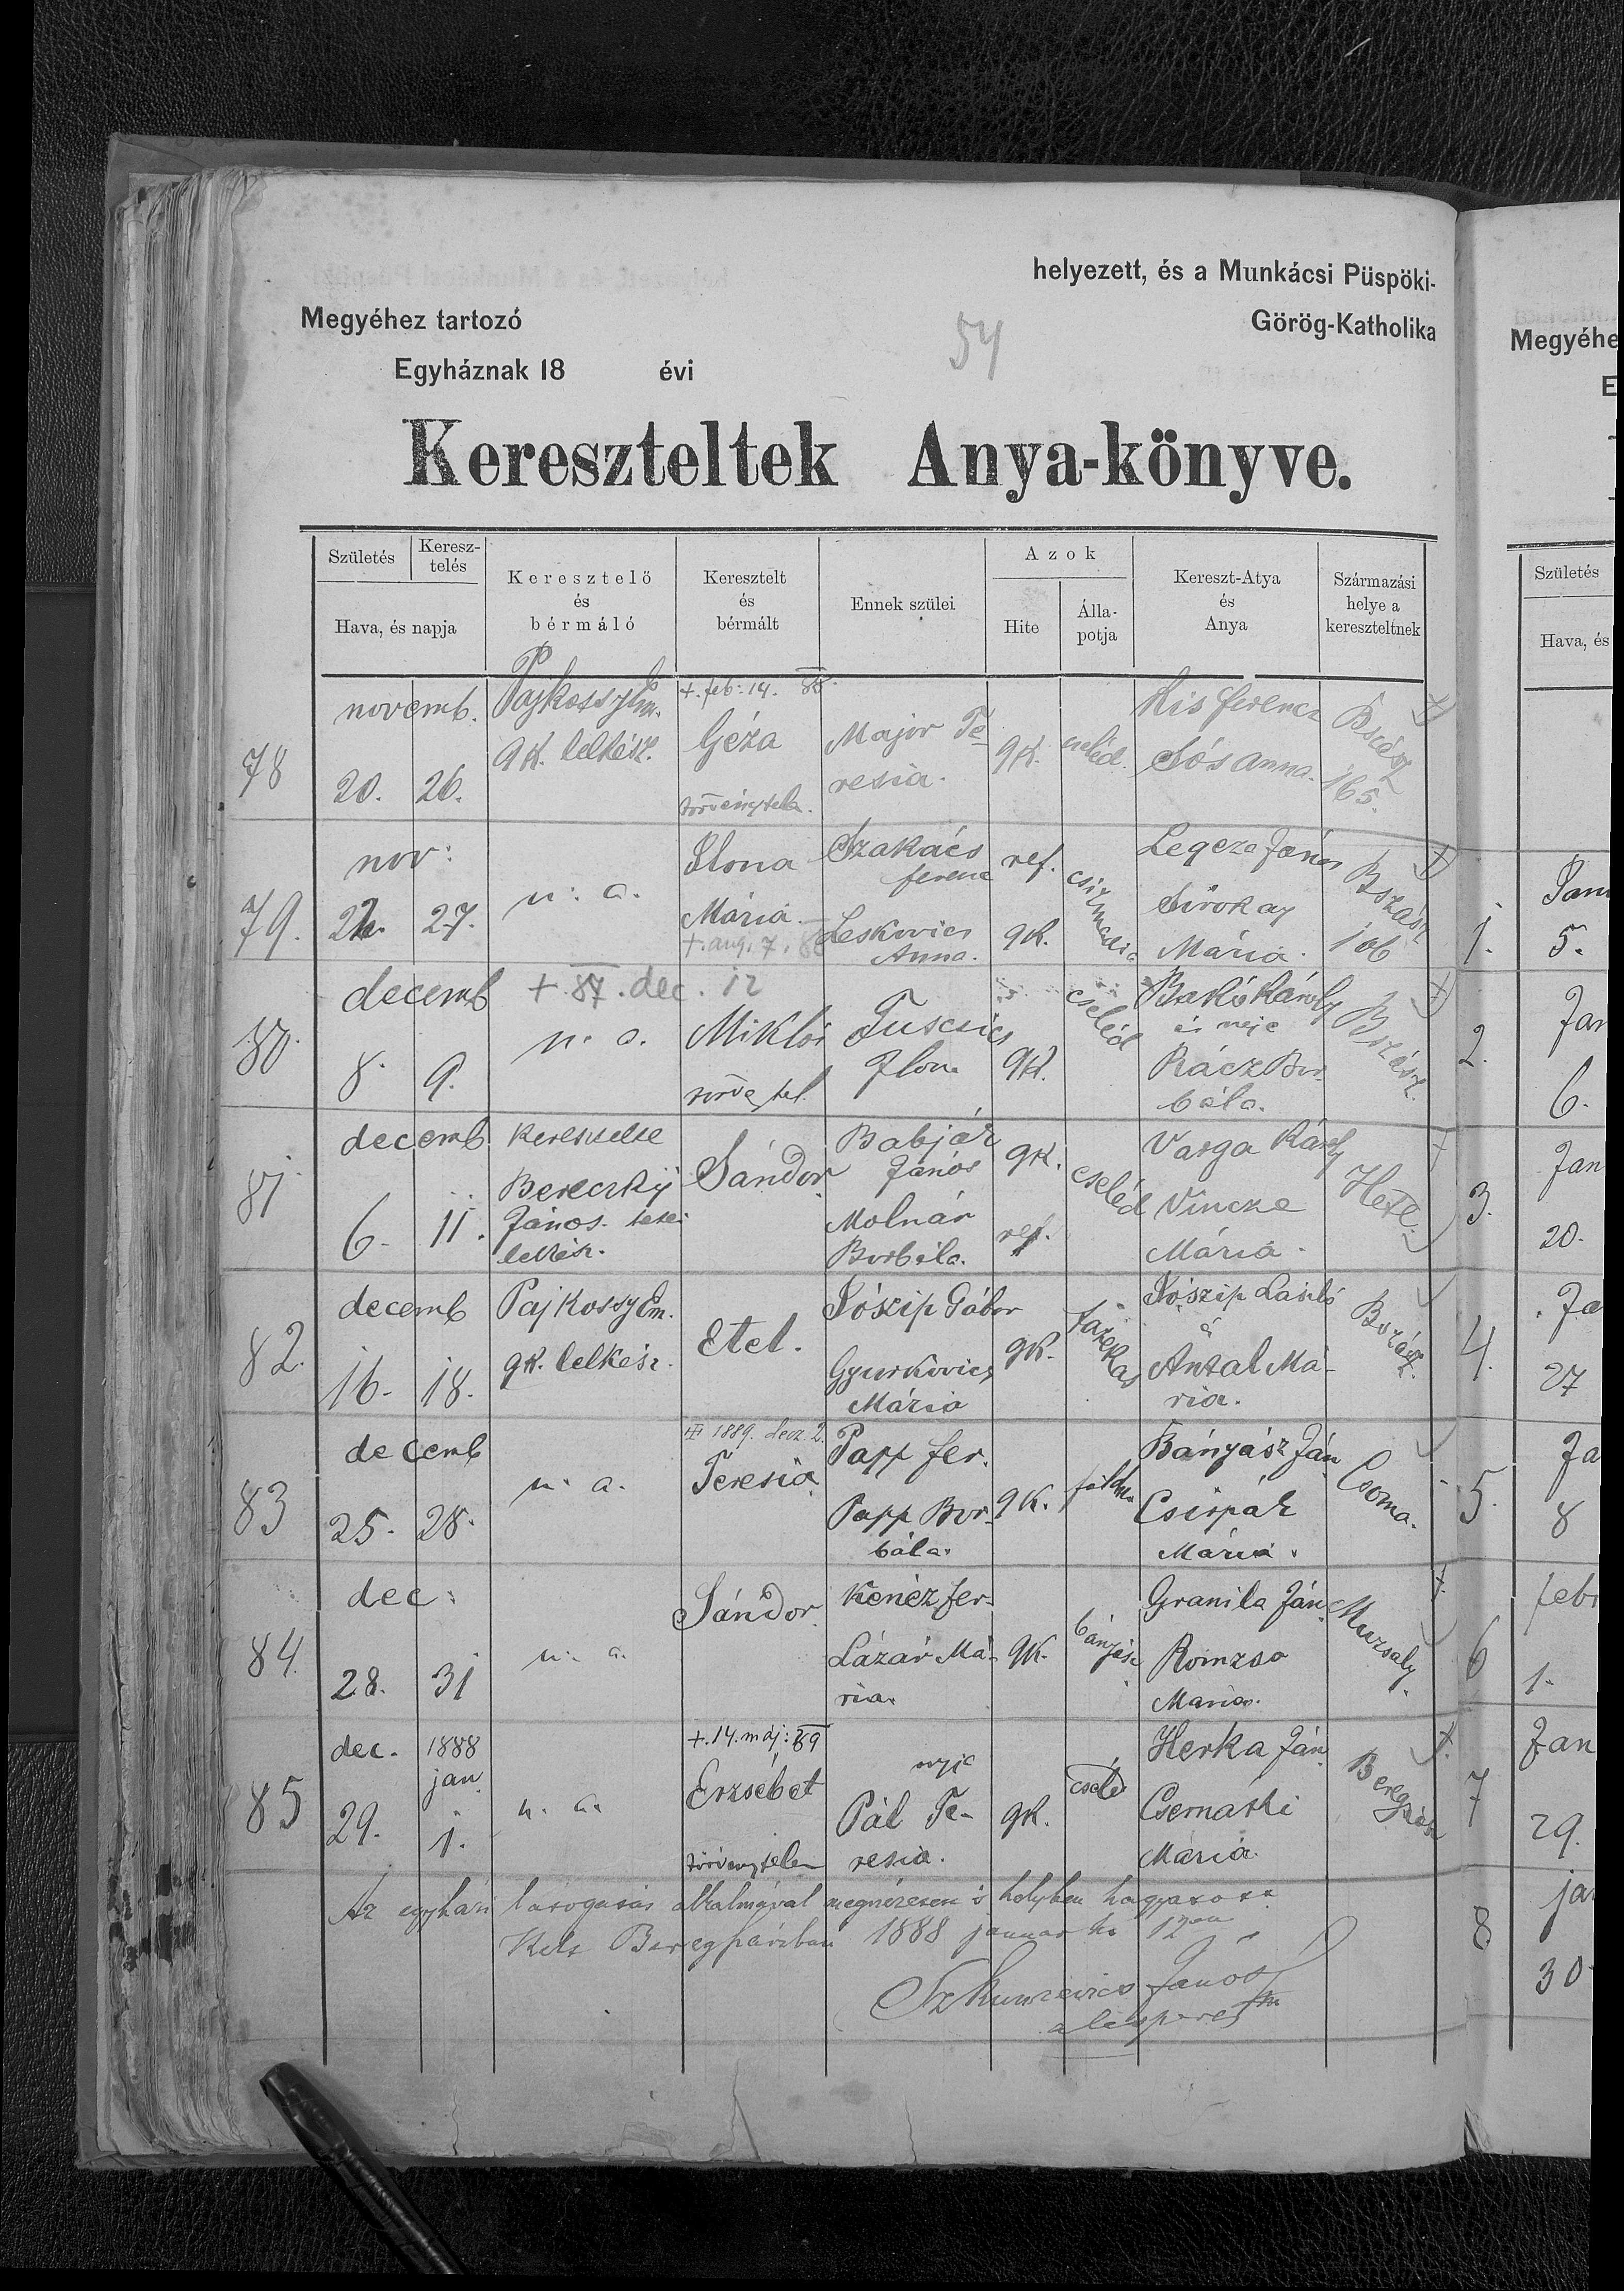 helyezett, és a Munkácsi Püspöki-
Megyéhez tartozó Görög-Katholika
54
Egyháznak 18 évi
Kereszteltek Anya-könyve.
Születés Keresz-telés Keresztelő és bérmáló Keresztelt és bérmált Ennek szülei Azok Kereszt-Atya és Anya Származási helye a kereszteltnek
Hava, és napja Hite Álla-potja
78 novemb. 20. 26. Pajkossy Em. gk. lelkész. +. feb: 14. 88. Géza törvénytelen. Major Te-resia. gk. cseléd. Kis ferencz Sós Anna. Bszász 165.
79. nov: 22. 27. u. a. Ilona Mária. +. aug. 7. 88 Szakács ferenc Leskovics Anna. ref. gk. csizmadia Legeza János Sirokay Mária. Bszász 106
80. decemb 8. 9. + 87. dec. 12 u. a. Miklós törvytel. Tuscsics Ilona gk. cseléd Bakó Károly és neje Rácz Bor-bála. Bszász.
81 decemb 6. 11. keresztelte Bereczky János. hetei lelkész. Sándor Babják János Molnár Borbála. gk. ref. cseléd Varga Károly Vincze Mária. Hete.
82. decemb 16. 18. Pajkossy Em. gk. lelkész. Etel. Jószip Gábor Gyurkovics Mária gk. fazekas Jószip László és Antal Má-ria. Bszász.
83 decemb 25. 28. u. a. 1889. decz. 2. Teresia. Papp fer. Papp Bor-bála. gk. földm. Bányász Ján. Csirpák Mária. Csoma.
84. dec: 28. 31 u. a. Sándor. Kenéz fer. Lázár Má-ria. gk. bányász. Granila Ján. Romzsa Maria. Muzsaly.
85 dec. 29. 1888 jan. 1. u. a. +. 14. máj: 89 Erzsébet törvénytelen Pál Te-resia. gk. cseléd Herka Ján. Mária. Beregszász
Az egyházi látogatás alkalmával megnézésem s helyben
Kelt Beregszászban 1888 januar hó 12én
János
alesperes
Megyéhe
E
Születés
Hava, és
1. Jan 5.
2. Jan 6.
3. Jan 20.
4. Ja 27
5. Ja 8
6 febr 1.
7 Jan 29.
8 jan 30